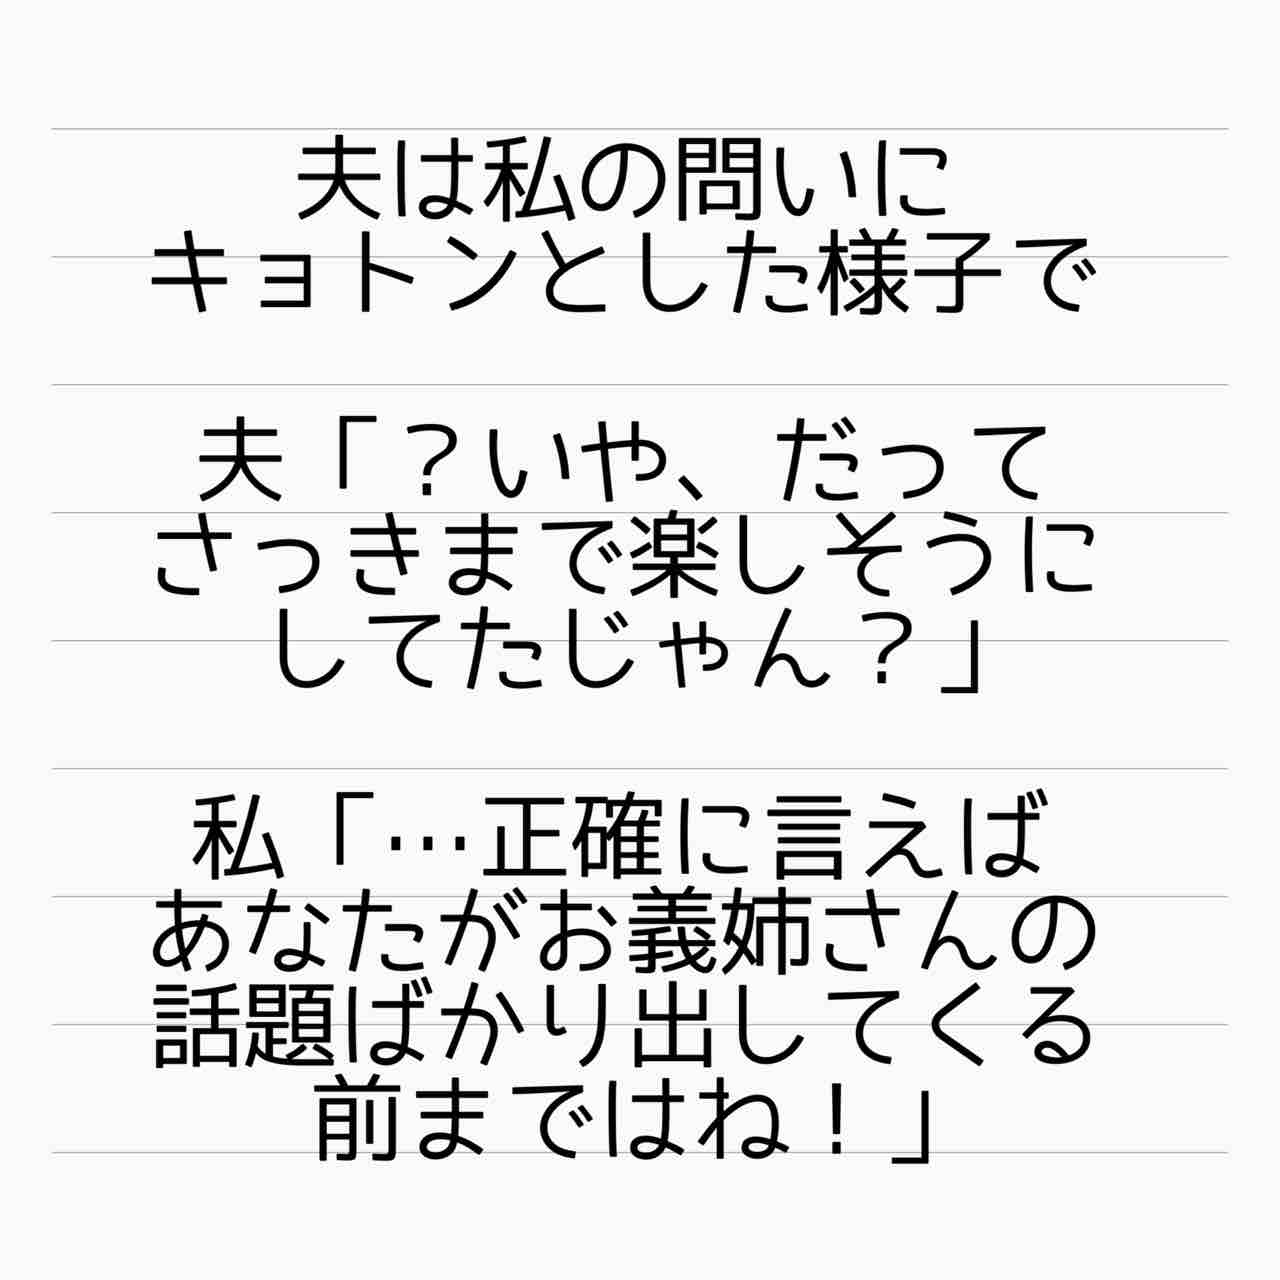 夫は私の問いに
キョトンとした様子で
夫「？いや、だって
さっきまで楽しそうに
してたじゃん？」
私「…正確に言えば
あなたがお義姉さんの
話題ばかり出してくる
前まではね！」